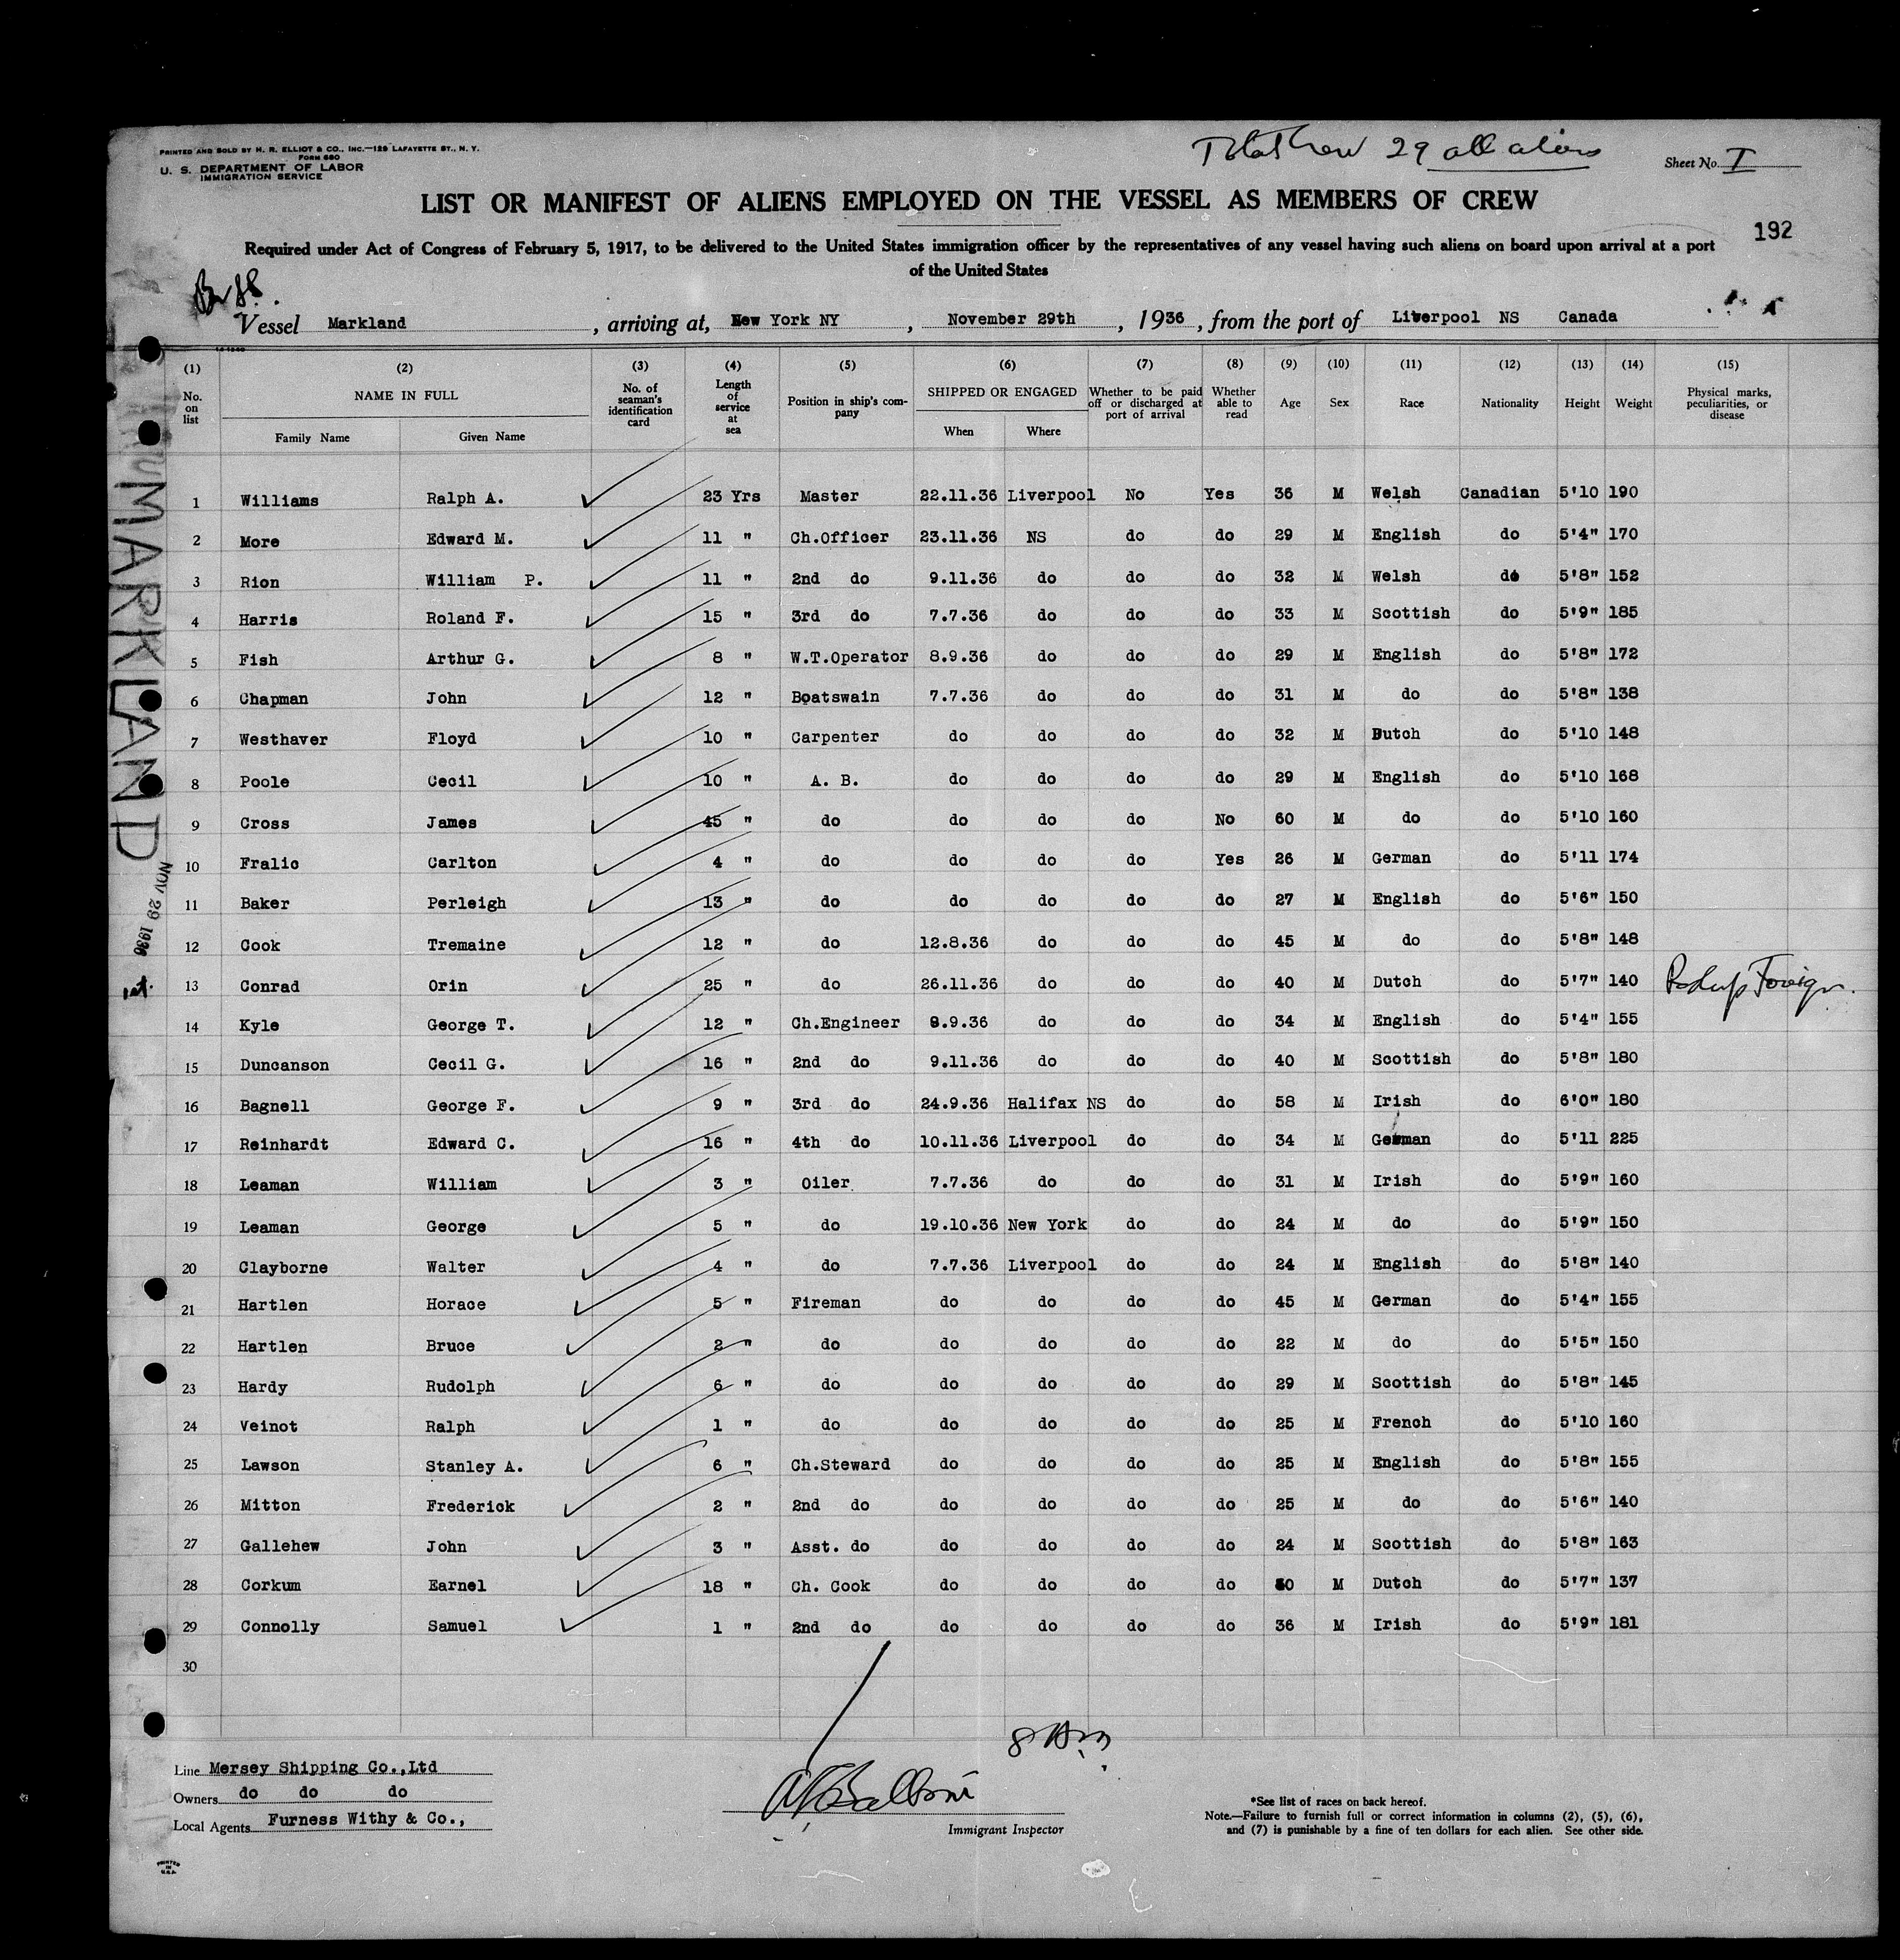 PRINTED AND SOLD BY H. R. ELLIOT & CO., INC.—129 LAFAYETTE ST., N. Y.
FORM 680
U. S. DEPARTMENT OF LABOR
IMMIGRATION SERVICE
Total Crew 29 all aliens
Sheet No. I
LIST OR MANIFEST OF ALIENS EMPLOYED ON THE VESSEL AS MEMBERS OF CREW
192
Required under Act of Congress of February 5, 1917, to be delivered to the United States immigration officer by the representatives of any vessel having such aliens on board upon arrival at a port
of the United States
Vessel Markland, arriving at, New York NY, November 29th, 1936, from the port of Liverpool NS Canada
(1) (2) (3) (4) (5) (6) (7) (8) (9) (10) (11) (12) (13) (14) (15)
No. on list NAME IN FULL Family Name Given Name No. of seaman's identification card Length of service at sea Position in ship's company SHIPPED OR ENGAGED When Where Whether to be paid off or discharged at port of arrival Whether able to read Age Sex Race Nationality Height Weight Physical marks, peculiarities, or disease
1 Williams Ralph A. 23 Yrs Master 22.11.36 Liverpool No Yes 36 M Welsh Canadian 5'10 190
2 More Edward M. 11 " Ch.Officer 23.11.36 NS do do 29 M English do 5'4" 170
3 Rion William P. 11 " 2nd do 9.11.36 do do do 32 M Welsh do 5'8" 152
4 Harris Roland F. 15 " 3rd do 7.7.36 do do do 33 M Scottish do 5'9" 185
5 Fish Arthur G. 8 " W.T.Operator 8.9.36 do do do 29 M English do 5'8" 172
6 Chapman John 12 " Boatswain 7.7.36 do do do 31 M do do 5'8" 138
7 Westhaver Floyd 10 " Carpenter do do do do 32 M Dutch do 5'10 148
8 Poole Cecil 10 " A. B. do do do do 29 M English do 5'10 168
9 Cross James 45 " do do do do No 60 M do do 5'10 160
10 Fralic Carlton 4 " do do do do Yes 26 M German do 5'11 174
11 Baker Perleigh 13 " do do do do do 27 M English do 5'6" 150
12 Cook Tremaine 12 " do 12.8.36 do do do 45 M do do 5'8" 148
13 Conrad Orin 25 " do 26.11.36 do do do 40 M Dutch do 5'7" 140 Foreign.
14 Kyle George T. 12 " Ch.Engineer 8.9.36 do do do 34 M English do 5'4" 155
15 Duncanson Cecil G. 16 " 2nd do 9.11.36 do do do 40 M Scottish do 5'8" 180
16 Bagnell George F. 9 " 3rd do 24.9.36 Halifax NS do do 58 M Irish do 6'0" 180
17 Reinhardt Edward C. 16 " 4th do 10.11.36 Liverpool do do 34 M German do 5'11 225
18 Leaman William 3 " Oiler 7.7.36 do do do 31 M Irish do 5'9" 160
19 Leaman George 5 " do 19.10.36 New York do do 24 M do do 5'9" 150
20 Clayborne Walter 4 " do 7.7.36 Liverpool do do 24 M English do 5'8" 140
21 Hartlen Horace 5 " Fireman do do do do 45 M German do 5'4" 155
22 Hartlen Bruce 2 " do do do do do 22 M do do 5'5" 150
23 Hardy Rudolph 6 " do do do do do 29 M Scottish do 5'8" 145
24 Veinot Ralph 1 " do do do do do 25 M French do 5'10 160
25 Lawson Stanley A. 6 " Ch.Steward do do do do 25 M English do 5'8" 155
26 Mitton Frederick 2 " 2nd do do do do do 25 M do do 5'6" 140
27 Gallehew John 3 " Asst. do do do do do 24 M Scottish do 5'8" 163
28 Corkum Earnel 18 " Ch. Cook do do do do M Dutch do 5'7" 137
29 Connolly Samuel 1 " 2nd do do do do do 36 M Irish do 5'9" 181
30
MARKLAND
NOV 29 1936
Line Mersey Shipping Co.,Ltd
Owners do do do
Local Agents Furness Withy & Co.,
Immigrant Inspector
*See list of races on back hereof.
Note.—Failure to furnish full or correct information in columns (2), (5), (6),
and (7) is punishable by a fine of ten dollars for each alien. See other side.
PRINTED
IN
U.S.A.